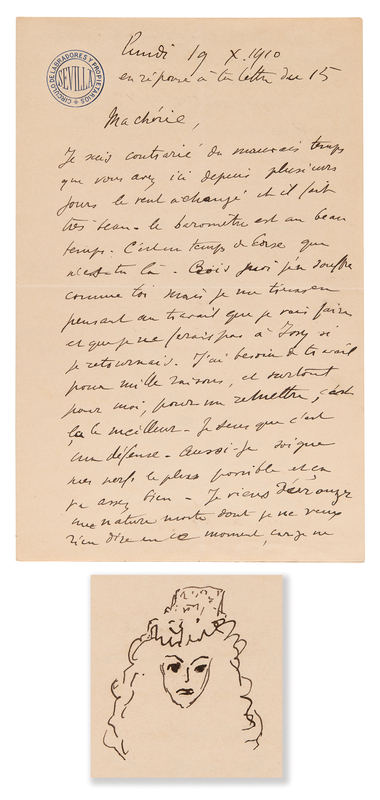 CIRCULO DE LABRADORES Y PROPIETARIOS
SEVILLA
Lundi 19 X. 1910
en réponse à ta lettre du 15
Ma chérie,
Je suis contrarié du mauvais temps
que vous avez ici depuis plusieurs
jours le vent a changé et il fait
très beau - le baromètre est au beau
temps. C'est un temps de Corse que
n'es tu là - Crois moi j'en souffre
comme toi mais je me tiens en
pensant au travail que je vais faire
et que je ne ferais pas à Issy si
je retournais. J'ai besoin de travail
pour mille raisons, et surtout
pour moi, pour me remettre, c'est
là le meilleur - Je sens que c'est
une défense - Aussi je soigne
mes nerfs le plus possible et ça
va assez bien - Je viens d'arranger
une nature morte dont je ne veux
rien dire en ce moment, car je ne